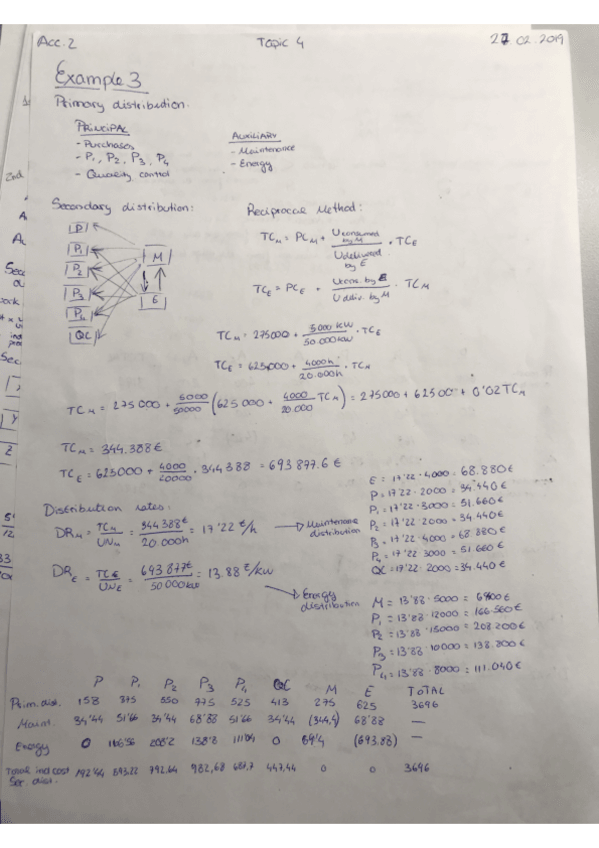 Acc. 2 Topic 4 27.02.2019
Example 3
Primary distribution.
PRINCIPAL
- Purchases
- P1, P2, P3, P4
- Quality control
AUXILIARY
- Maintenance
- Energy
Secondary distribution:
P
P1
P2
P3
P4
QC
M
E
Reciprocal Method:
TCM = PCM + U consumed by M / U delivered by E · TCE
TCE = PCE + U cons. by E / U deliv. by M · TCM
TCM = 275000 + 5000 kW / 50.000 kW · TCE
TCE = 625.000 + 4000 h / 20.000 h · TCM
TCM = 275 000 + 5000 / 50000 (625 000 + 4000 / 20.000 TCM) = 275000 + 62500 + 0'02 TCM
TCM = 344.388 €
TCE = 625000 + 4000 / 20000 · 344388 = 693 877.6 €
Distribution rates:
DRM = TCM / UNM = 344388 € / 20.000 h = 17'22 €/h → Maintenance distribution
E = 17'22 · 4000 = 68.880 €
P = 17'22 · 2000 = 34.440 €
P1 = 17'22 · 3000 = 51.660 €
P2 = 17'22 · 2000 = 34.440 €
P3 = 17'22 · 4000 = 68.880 €
P4 = 17'22 3000 = 51.660 €
QC = 17'22 · 2000 = 34.440 €
DRE = TCE / UNE = 693.877 € / 50.000 kW = 13.88 €/kW → Energy distribution
M = 13'88 · 5000 = 69400 €
P1 = 13'88 · 12000 = 166 560 €
P2 = 13'88 · 15000 = 208 200 €
P3 = 13'88 · 10000 = 138.800 €
P4 = 13'88 · 8000 = 111.040 €
P P1 P2 P3 P4 QC M E TOTAL
Prim. dist. 158 375 550 775 525 413 275 625 3696
Maint. 34'44 51'66 34'44 68'88 51'66 34'44 (344,4) 68'88 —
Energy 0 166'56 208'2 138'8 111'04 0 69'4 (693.88) —
Total ind cost 192'44 593.22 792.64 982,68 687,7 447,44 0 0 3696
Sec. dist.